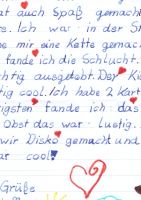 at auch Spaß gemacht
re. Ich war in der St
e mir eine Kette gemac
fande ich die Schlucht.
chtig ausgetobt. Der Ki
tig cool. Ich habe 2 Kart
igsten fande ich das
Obst das war lustig.
wir Disko gemacht und
ar cool!
Grüße